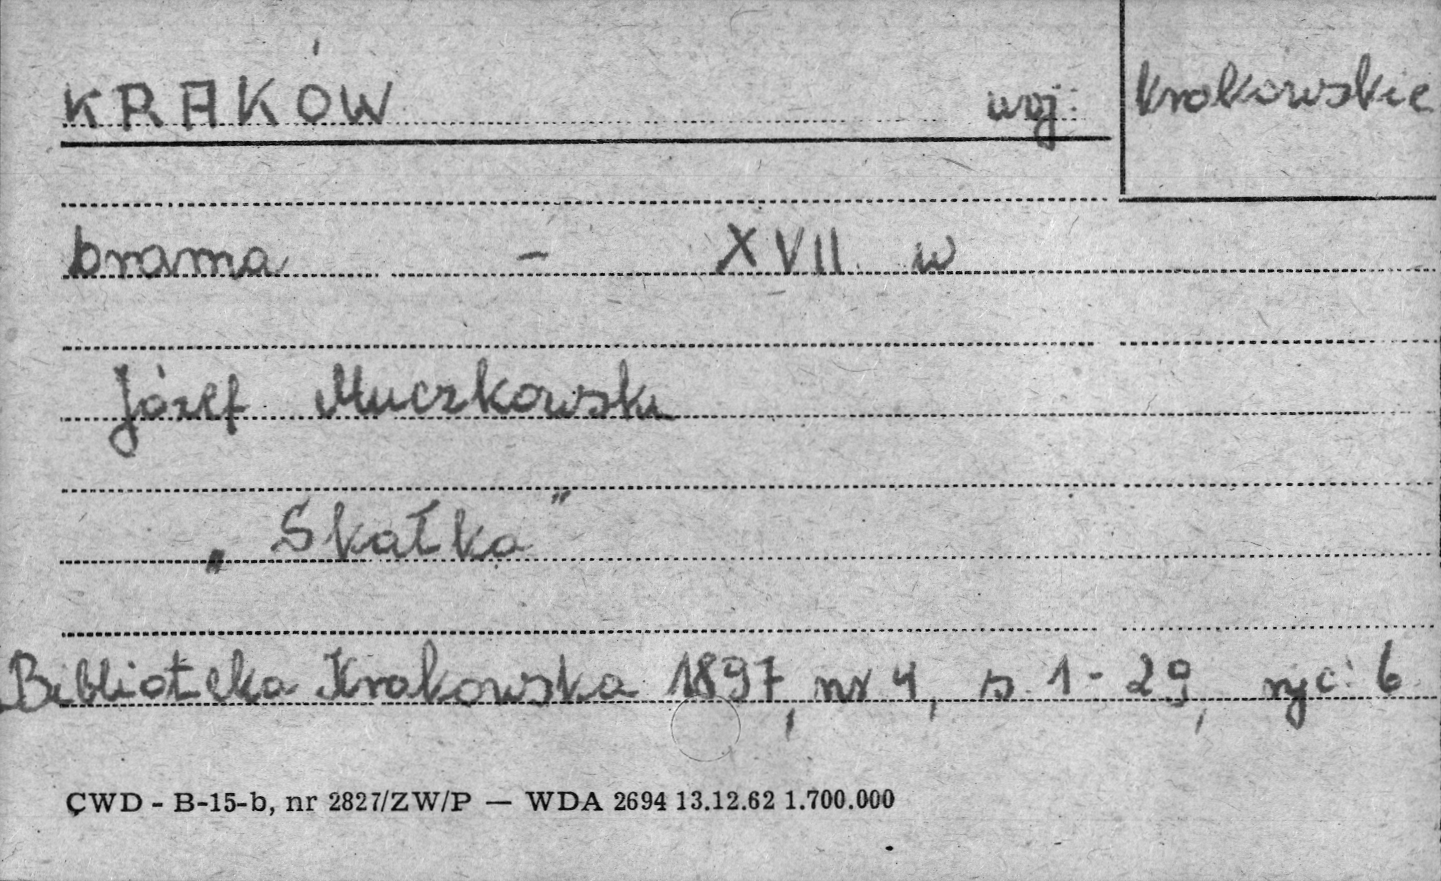 KRAKÓW woj: krakowskie
brama - XVII w
Józef Muczkowski
„Skałka”
Biblioteka Krakowska 1897, nr 4, s. 1-29, ryc: 6
ÇWD - B-15-b, nr 2827/ZW/P — WDA 2694 13.12.62 1.700.000